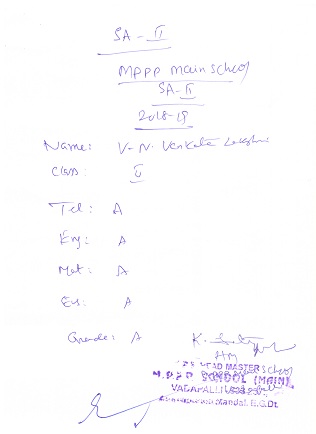 SA - II
MPPP main school
SA - II
2018-19
Name: V. N. Venkata Lakshmi
Class: II
Tel: A
Eng: A
Mat: A
Evs: A
Grade: A
HM
HEAD MASTER
M.P.P.P SCHOOL (MAIN)
VADAPALLI
Mandal. E.G.Dt